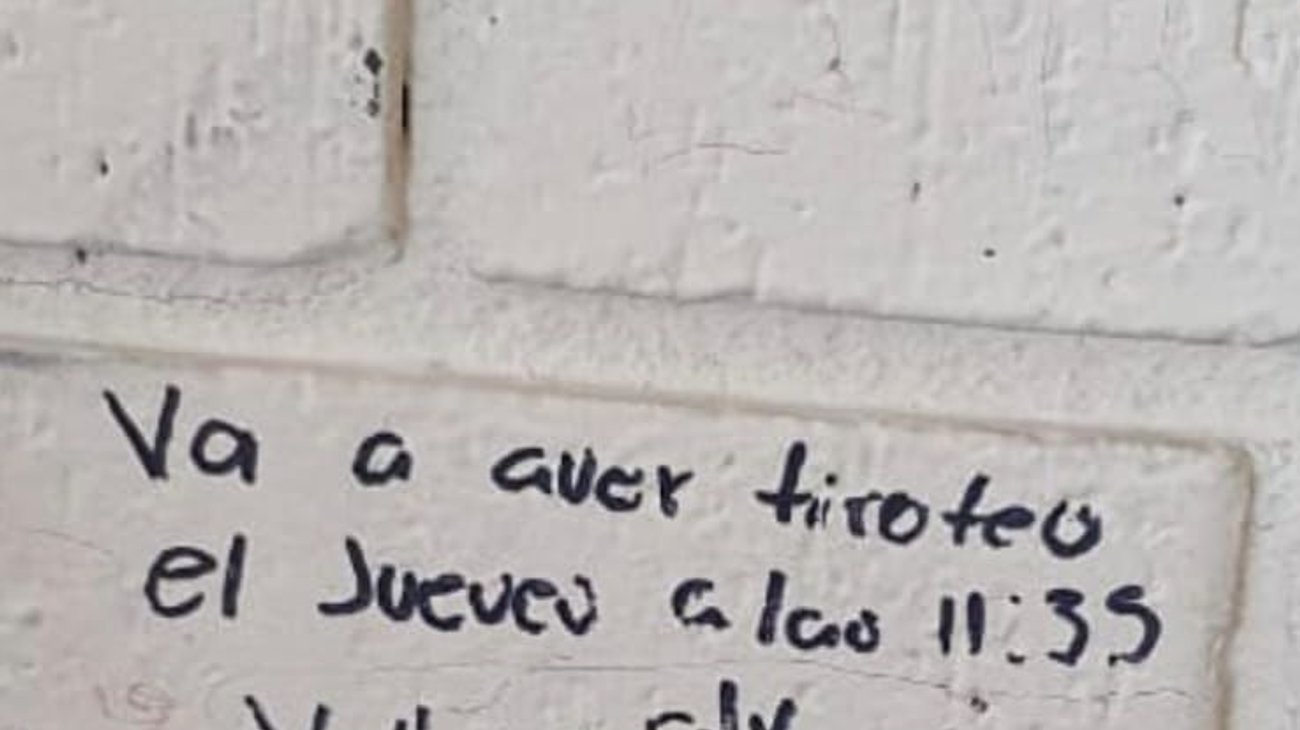 Va a aver tiroteo
el Jueves a las 11:35